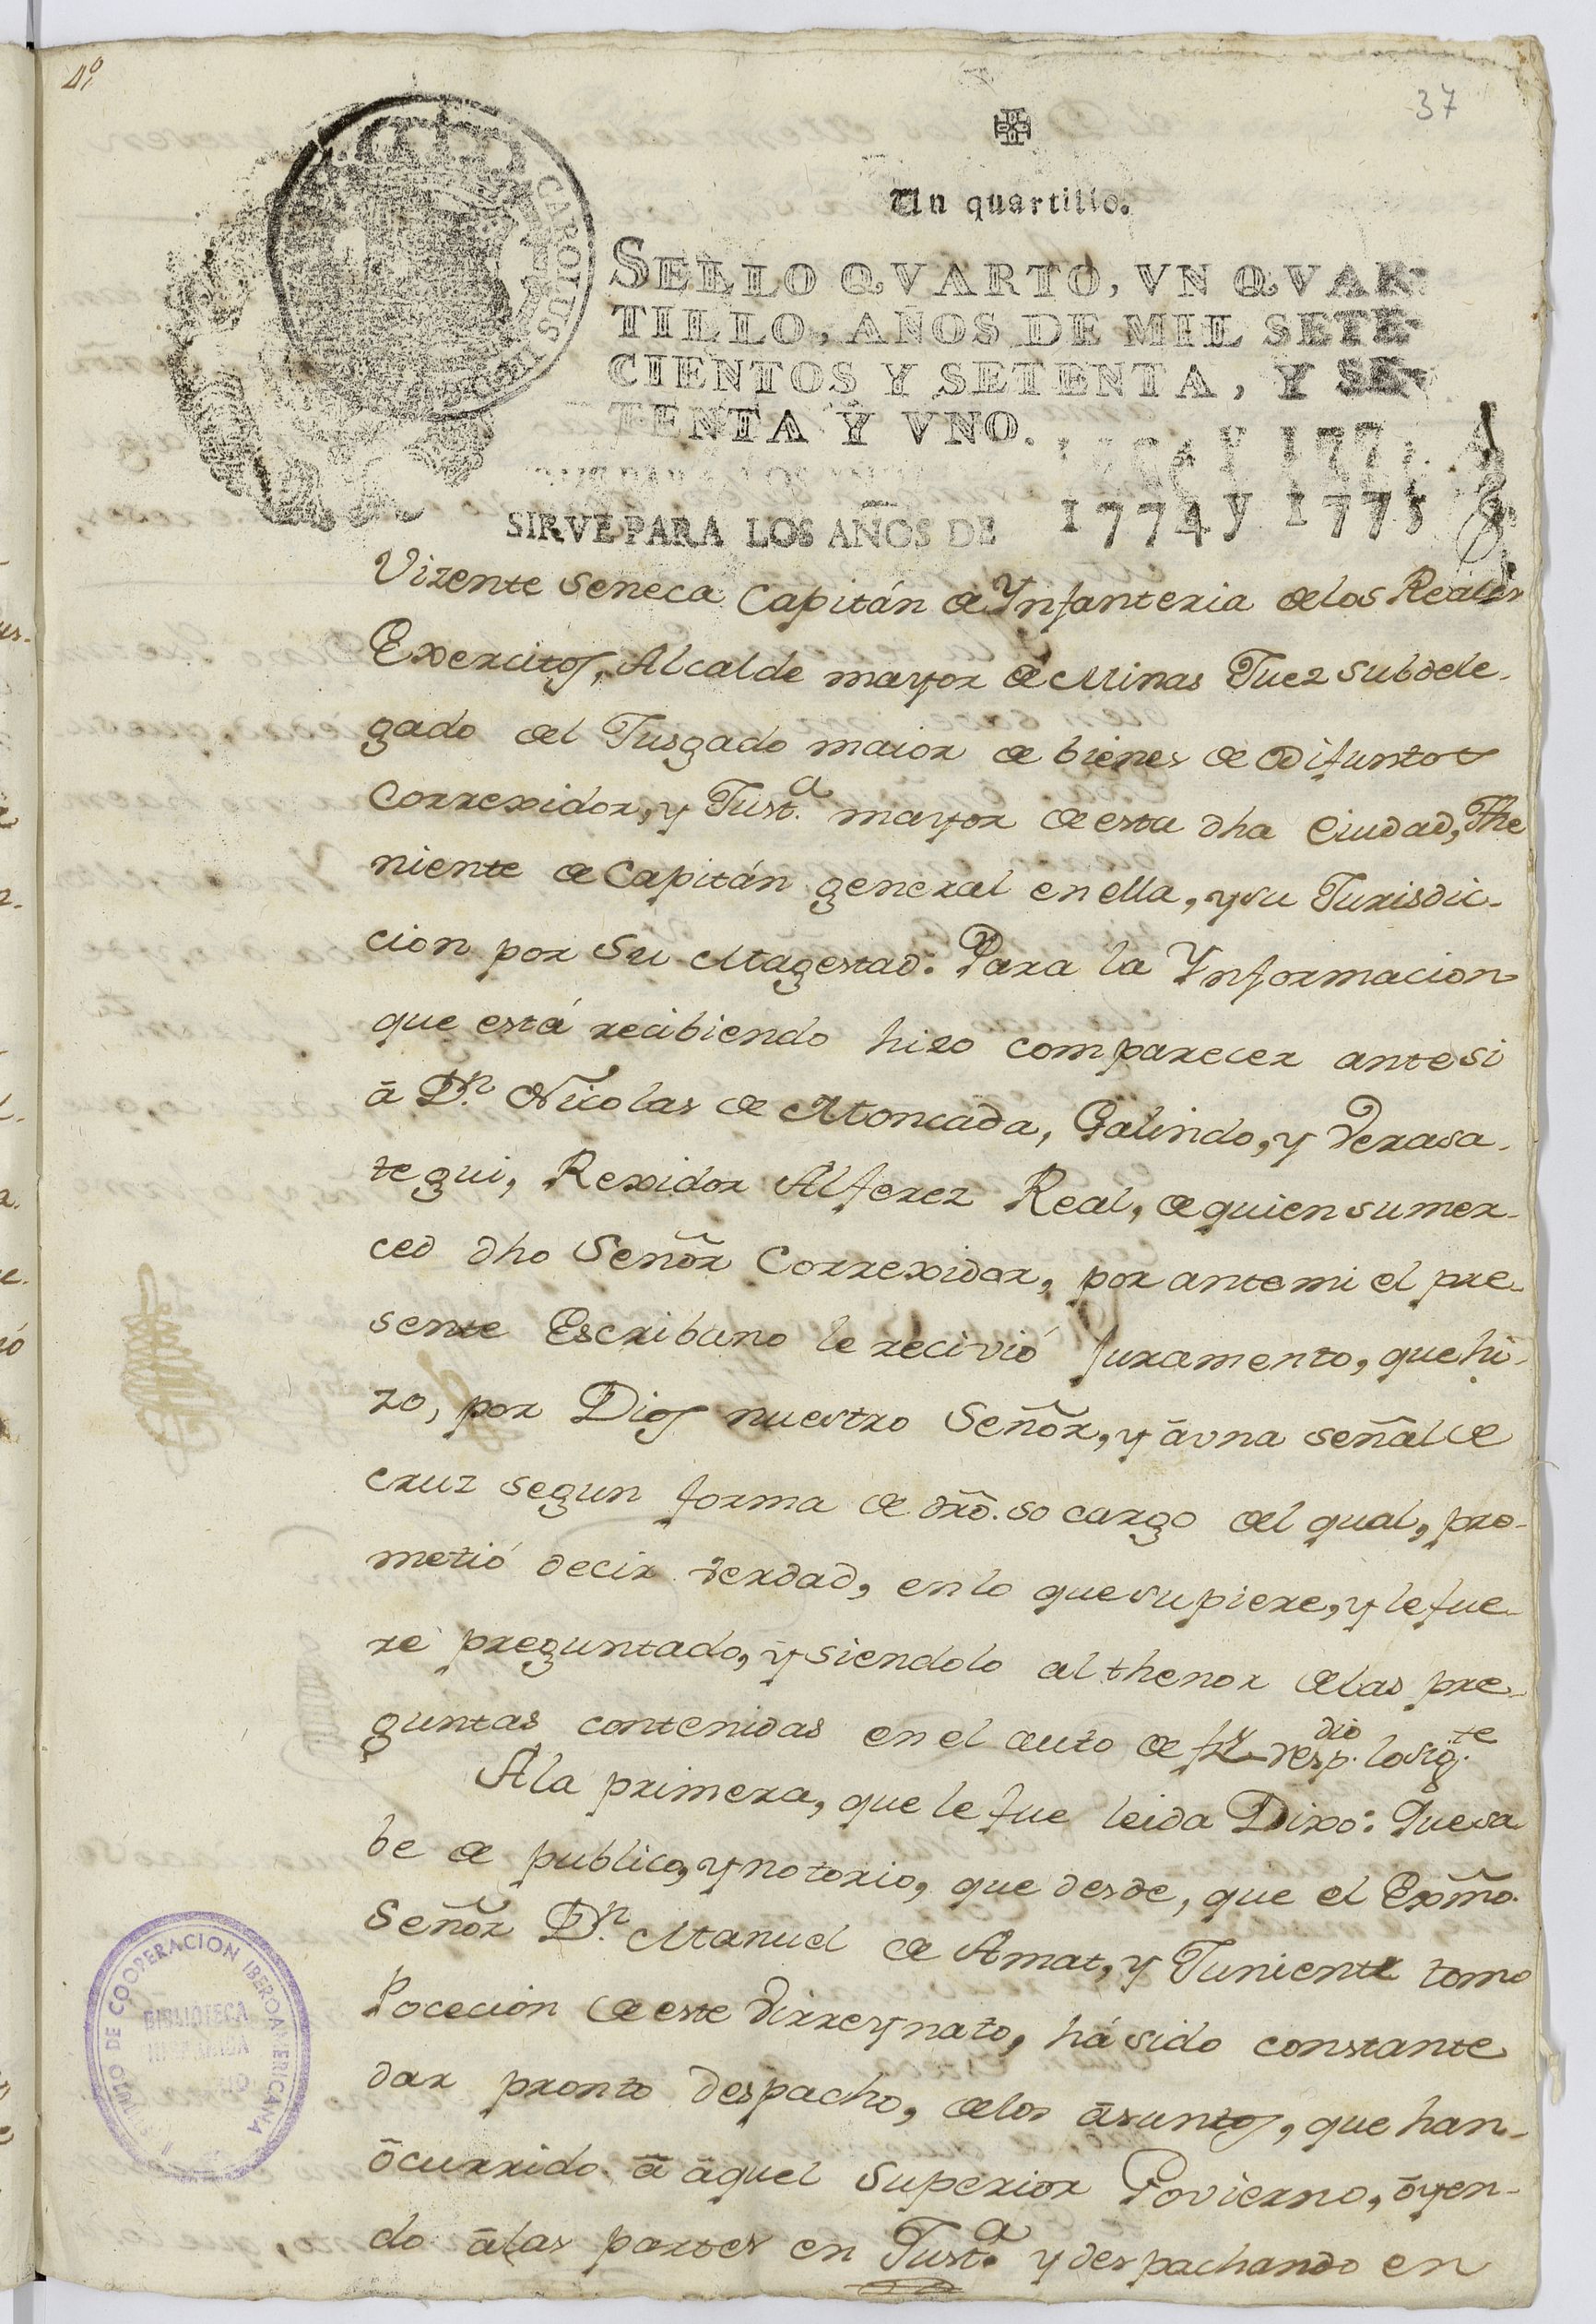 4º
37
Un quartillo.
SELLO QVARTO, VN QVAR-
TILLO, AÑOS DE MIL SETE-
CIENTOS Y SETENTA, Y SE-
TENTA Y VNO.
CAROLUS
SIRVE PARA LOS AÑOS DE 1774 y 1775
Vizente Seneca Capitán de Ynfanteria delos Reales
Exercitos, Alcalde mayor de Minas Juez subdele-
gado del Jusgado maior de bienes de Difuntos
Correxidor, y Just.ª mayor de esta dha Ciudad, The
niente de Capitán general en ella, y su Jurisdic-
cion por Su Magestad: Para la Ynformacion
que está recibiendo hizo comparecer ante si
â D.n Nicolas de Moncada, Galindo, y Verasa-
tegui, Rexidor Alferez Real, de quien su mer-
ced dho Señor Correxidor, por ante mi el pre-
sente Escribano le recivió juramento, que hi-
zo, por Dios nuestro Señor, y â vna señal de
cruz segun forma de dró. so cargo del qual, pro-
metió decir verdad, en lo que supiere, y le fue-
re preguntado, y siendolo al thenor delas pre-
guntas contenidas en el auto de resp.dio lo sig.te
A la primera, que le fue leida Dixo: Que sa
be de publico, y notorio, que desde, que el Exmô.
Señor D.n Manuel de Amat, y Juniente tomo
Pocecion de este Virreynato, há sido constante
dar pronto despacho, delos âsuntos, que han-
ôcurrido â âquel Superior Govierno, ôyen-
do âlas partes en Just.ª y despachando en
INSTITUTO DE COOPERACION IBEROAMERICANA
BIBLIOTECA